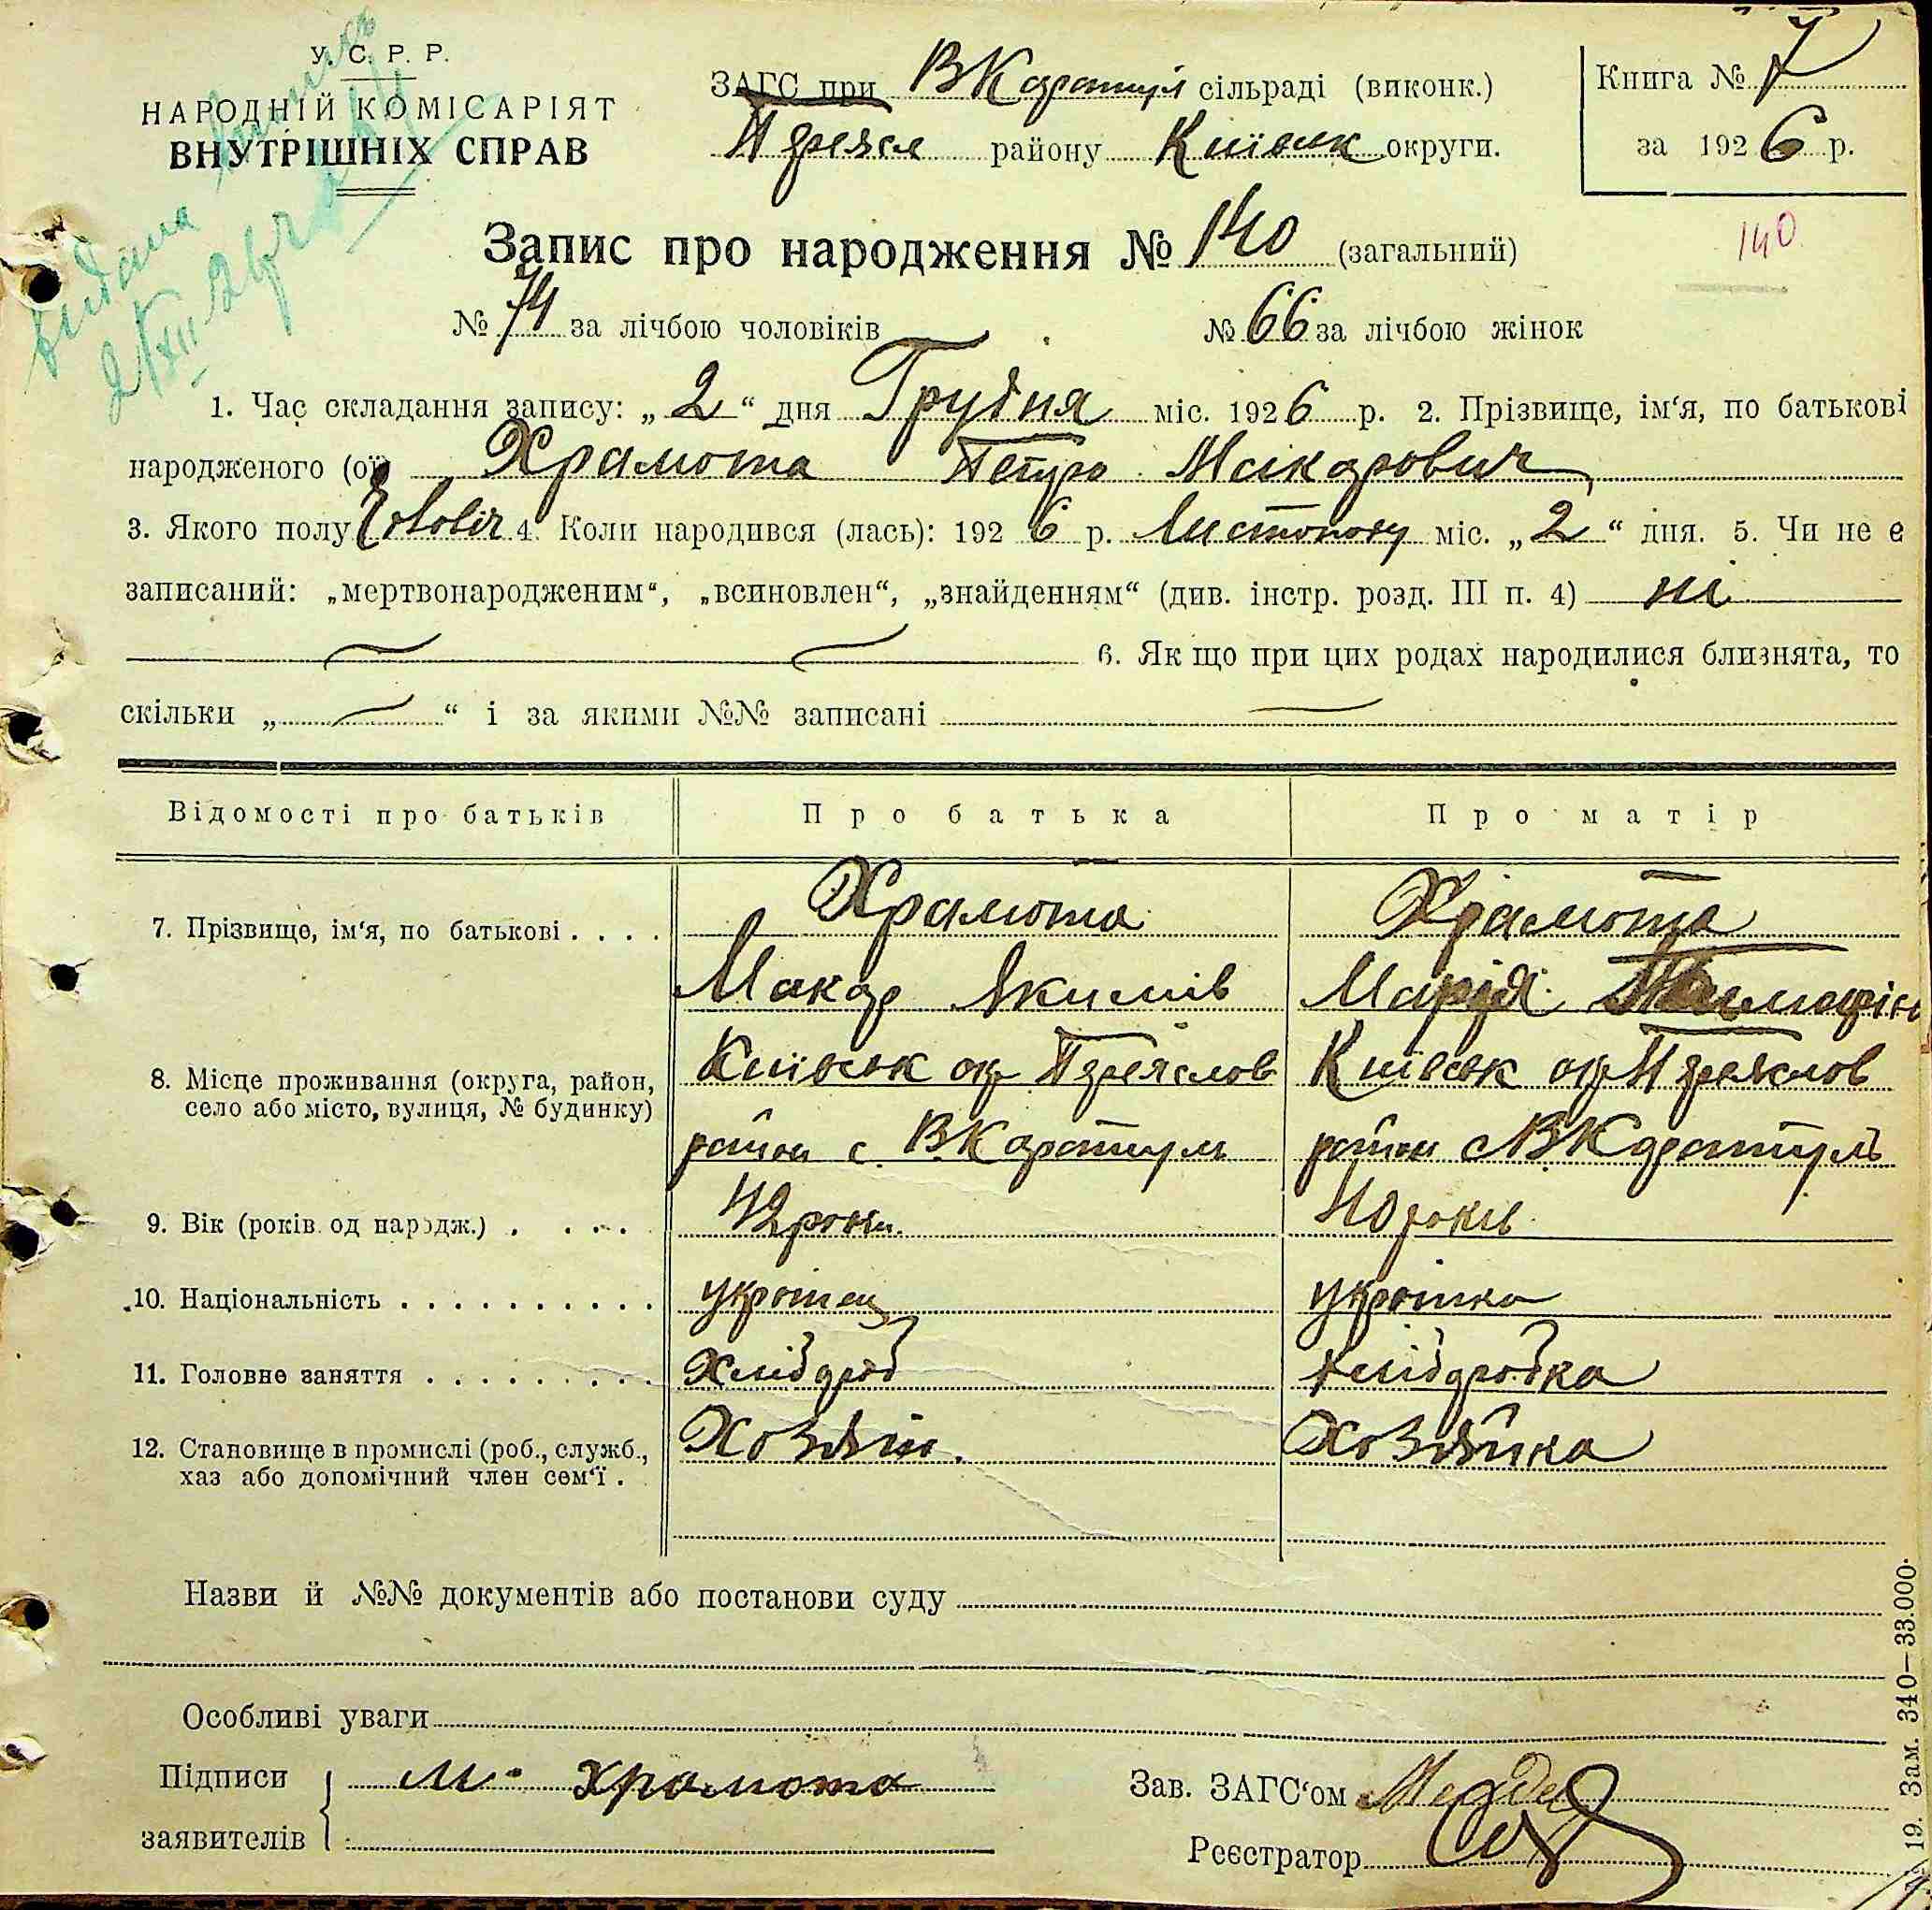 У. С. Р. Р.
НАРОДНІЙ КОМІСАРІЯТ
ВНУТРІШНІХ СПРАВ
ЗАГС при В Каратул сільраді (виконк.)
Переясл району Київськ округи.
Книга № 7
за 1926 р.
видана
2/XII 26 р
Запис про народження № 140 (загальний)
140
№ 74 за лічбою чоловіків № 66 за лічбою жінок
1. Час складання запису: „2“ дня Грудня міс. 1926 р. 2. Прізвище, ім‘я, по батькові
народженого (ої) Храмота Петро Макарович
3. Якого полу Чоловіч 4. Коли народився (лась): 1926 р. Листопаду міс. „2“ дня. 5. Чи не є
записаний: „мертвонародженим“, „всиновлен“, „знайденням“ (див. інстр. розд. III п. 4) ні
6. Як що при цих родах народилися близнята, то
скільки „ — “ і за якими №№ записані —
Відомості про батьків Про батька Про матір
7. Прізвище, ім‘я, по батькові . . . . Храмота Храмота
Макар Якимів Марія
8. Місце проживання (округа, район, Київськ окр Переяслов Київськ окр Переяслов
село або місто, вулиця, № будинку) район с. В.Каратуль район с В.Каратуль
9. Вік (років од народж.) . . . . 42 роки. 40 років
10. Національність . . . . . . . . . . . україنец україінка
11. Головне заняття . . . . . . . . . Хлібороб хліборобка
12. Становище в промислі (роб., служб., Хозяїн. Хозяйка
хаз або допомічний член сем‘ї .
Назви й №№ документів або постанови суду
Особливі уваги
Підписи м. храмота
заявителів
Зав. ЗАГС‘ом
Реєстратор
19. Зам. 340—33.000.